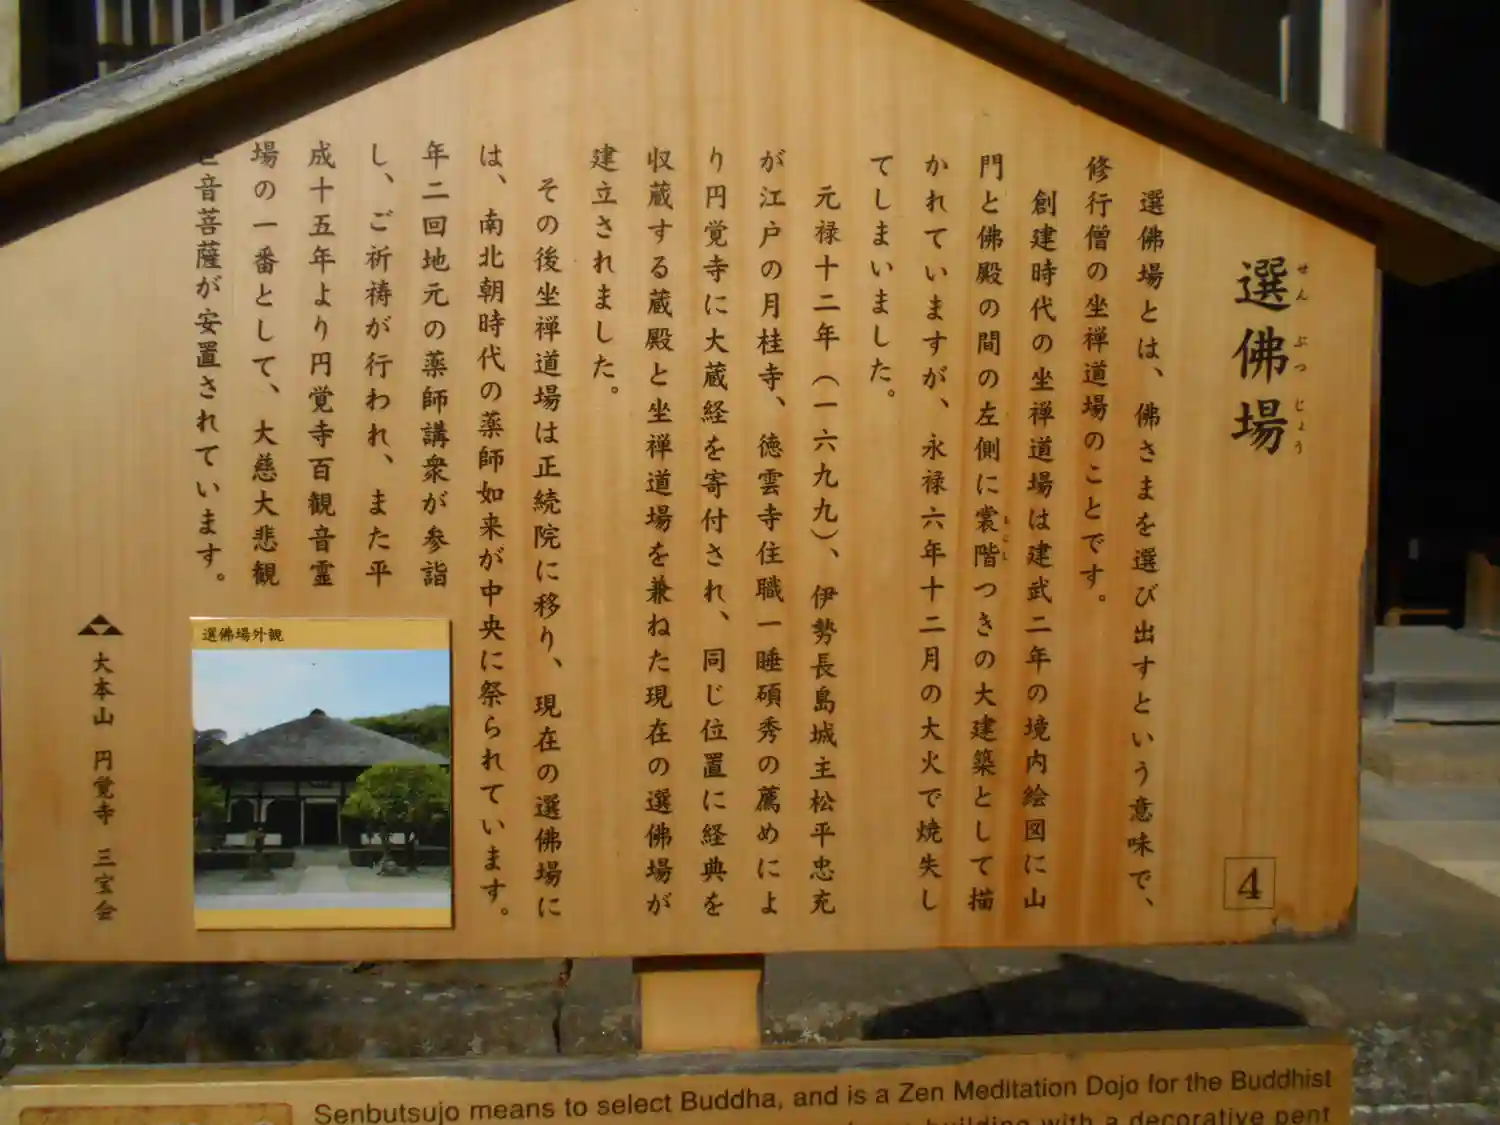 選佛場
せんぶつじょう
4
選佛場とは、佛さまを選び出すという意味で、
修行僧の坐禅道場のことです。
創建時代の坐禅道場は建武二年の境内絵図に山
門と佛殿の間の左側に裳階つきの大建築として描
かれていますが、永禄六年十二月の大火で焼失し
てしまいました。
元禄十二年（一六九九）、伊勢長島城主松平忠充
が江戸の月桂寺、徳雲寺住職一睡碩秀の薦めによ
り円覚寺に大蔵経を寄付され、同じ位置に経典を
収蔵する蔵殿と坐禅道場を兼ねた現在の選佛場が
建立されました。
その後坐禅道場は正続院に移り、現在の選佛場に
は、南北朝時代の薬師如来が中央に祭られています。
年二回地元の薬師講衆が参詣
し、ご祈祷が行われ、また平
成十五年より円覚寺百観音霊
場の一番として、大慈大悲観
音菩薩が安置されています。
選佛場外観
大本山 円覚寺 三宝会
Senbutsujo means to select Buddha, and is a Zen Meditation Dojo for the Buddhist
building with a decorative pent